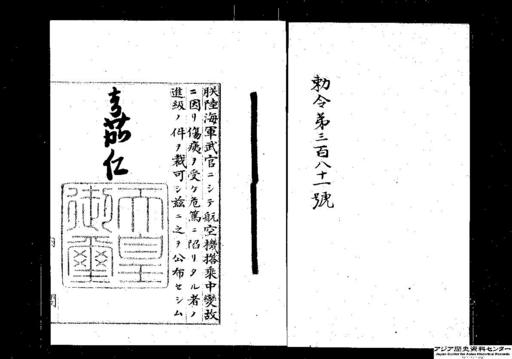 勅令第三百八十一號
朕陸海軍武官ニシテ航空機搭乗中變故
ニ因リ傷痍ヲ受ケ危篤ニ陷リタル者ノ
進級ノ件ヲ裁可シ茲ニ之ヲ公布セシム
嘉仁
天皇
御璽
内
閣
アジア歴史資料センター
Japan Center for Asian Historical Records